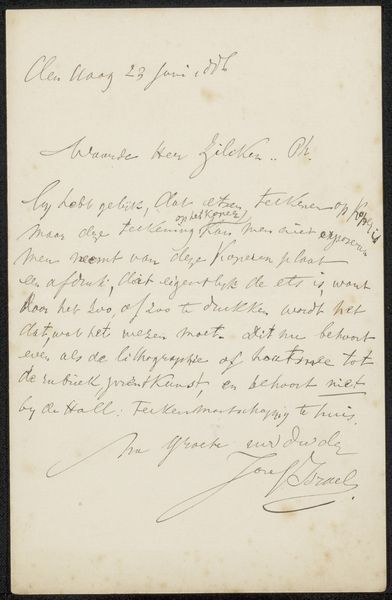 den Haag 23 Juni
Waarde Heer Zilcken.. Ph.
Gy hebt gelyk, dat etsen teekenen op Koper is
op het Koper
maar deze teekening kan men niet exposeren
men neemt van deze Koperen plaat
een afdruk, dat eigentlyk de ets is want
door het zoo, of zoo te drukken wordt het
dat, wat het wezen moet. Dit nu behoort
even als de lithographie of houtsnee tot
de rubriek prentkunst, en behoort niet
by de Holl: Teekenmaatschappij te huis.
Na groete uw dwdr
Jozef Israels